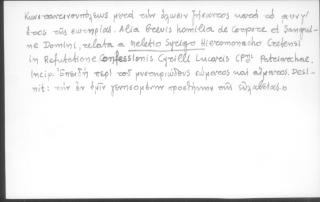 Κωνσταντινουπόλεως μετὰ τὴν ἅλωσιν ζήσαντος κατὰ τὸ
ἔτος τῆς σωτηρίας. Alia brevis homilia de Corpore et Sangui-
ne Domini, relata a Meletio Syrigo Hieromonacho Cretensi
in Refutatione Confessionis Cyrilli Lucaris CPJ: Patriarchae.
Incip. Ἐπειδὴ περὶ τοῦ μυστηριώδους σώματος καὶ αἵματος. Desi-
nit: τὴν ἐν ὑμῖν γενησομένην προσθήκην τῆς εὐλαβείας.